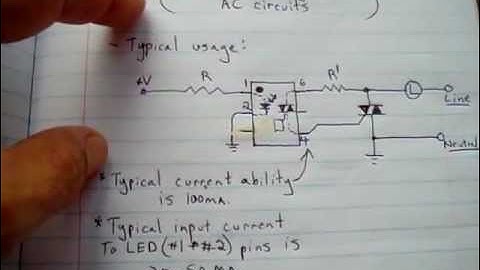 ( AC circuits )
- Typical usage:
+V
R
1
6
R'
L
Line
2
4
Neutral
* Typical current ability
is 100mA.
* Typical input current
To LED (#1 & #2) pins is